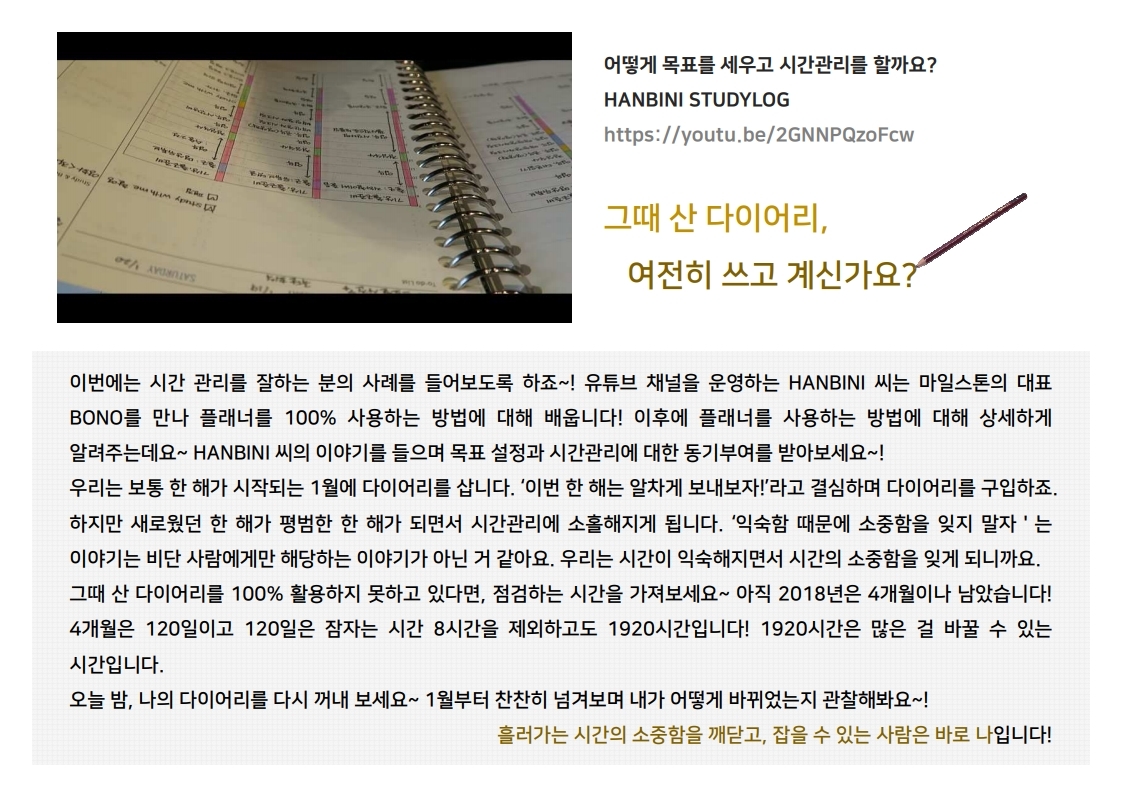 어떻게 목표를 세우고 시간관리를 할까요?
HANBINI STUDYLOG
https://youtu.be/2GNNPQzoFcw
그때 산 다이어리,
여전히 쓰고 계신가요?
SATURDAY 1/20
이번에는 시간 관리를 잘하는 분의 사례를 들어보도록 하죠~! 유튜브 채널을 운영하는 HANBINI 씨는 마일스톤의 대표
BONO를 만나 플래너를 100% 사용하는 방법에 대해 배웁니다! 이후에 플래너를 사용하는 방법에 대해 상세하게
알려주는데요~ HANBINI 씨의 이야기를 들으며 목표 설정과 시간관리에 대한 동기부여를 받아보세요~!
우리는 보통 한 해가 시작되는 1월에 다이어리를 삽니다. ‘이번 한 해는 알차게 보내보자!’라고 결심하며 다이어리를 구입하죠.
하지만 새로웠던 한 해가 평범한 한 해가 되면서 시간관리에 소홀해지게 됩니다. ‘익숙함 때문에 소중함을 잊지 말자 ' 는
이야기는 비단 사람에게만 해당하는 이야기가 아닌 거 같아요. 우리는 시간이 익숙해지면서 시간의 소중함을 잊게 되니까요.
그때 산 다이어리를 100% 활용하지 못하고 있다면, 점검하는 시간을 가져보세요~ 아직 2018년은 4개월이나 남았습니다!
4개월은 120일이고 120일은 잠자는 시간 8시간을 제외하고도 1920시간입니다! 1920시간은 많은 걸 바꿀 수 있는
시간입니다.
오늘 밤, 나의 다이어리를 다시 꺼내 보세요~ 1월부터 찬찬히 넘겨보며 내가 어떻게 바뀌었는지 관찰해봐요~!
흘러가는 시간의 소중함을 깨닫고, 잡을 수 있는 사람은 바로 나입니다!